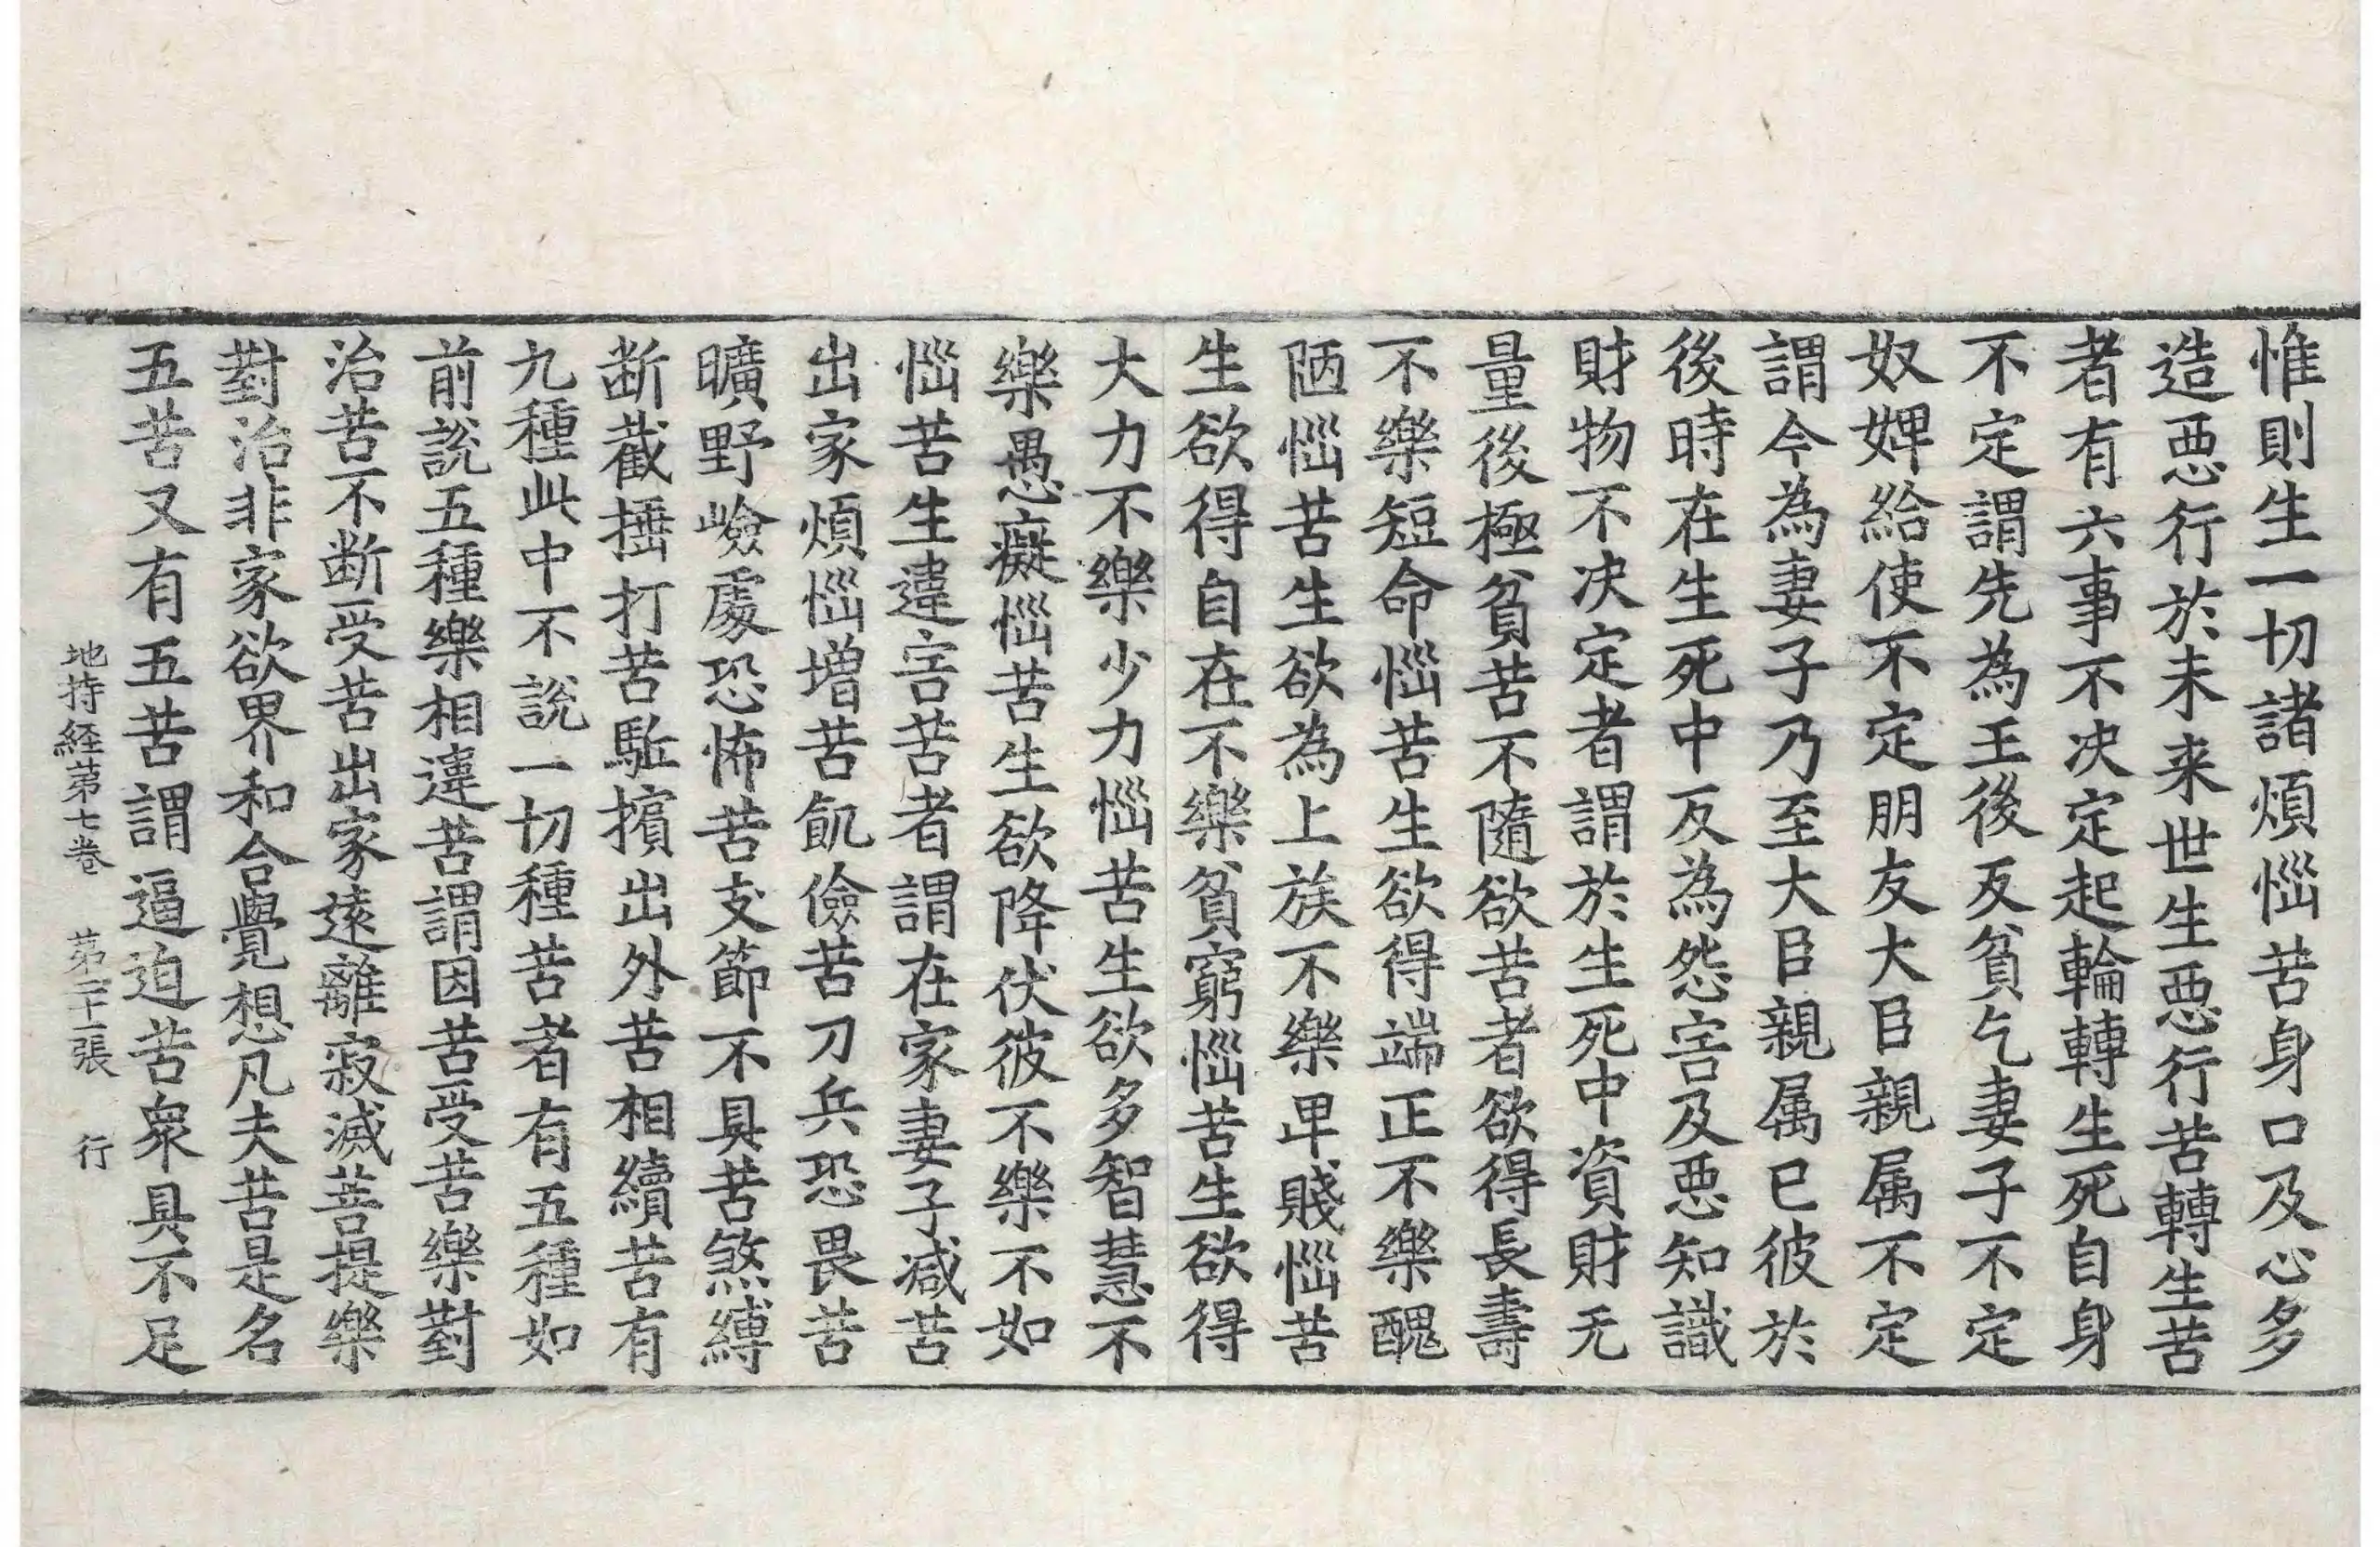 惟則生一切諸煩惱苦身口及心多
造惡行於未来世生惡行苦轉生苦
者有六事不决定起輪轉生死自身
不定謂先為王後反貧乞妻子不定
奴婢給使不定朋友大臣親属不定
謂今為妻子乃至大臣親属已彼於
後時在生死中反為怨害及惡知識
財物不决定者謂於生死中資財无
量後極貧苦不隨欲苦者欲得長壽
不樂短命惱苦生欲得端正不樂醜
陋惱苦生欲為上族不樂卑賤惱苦
生欲得自在不樂貧窮惱苦生欲得
大力不樂少力惱苦生欲多智慧不
樂愚癡惱苦生欲降伏彼不樂不如
惱苦生違害苦者謂在家妻子減苦
出家煩惱增苦飢儉苦刀兵恐畏苦
曠野嶮處恐怖苦支節不具苦煞縛
断截捶打苦駈擯出外苦相續苦有
九種此中不說一切種苦者有五種如
前說五種樂相違苦謂因苦受苦樂對
治苦不断受苦出家遠離寂滅菩提樂
對治非家欲界和合覺想凡夫苦是名
五苦又有五苦謂逼迫苦衆具不足
地持経第七巻 第二十一張 行